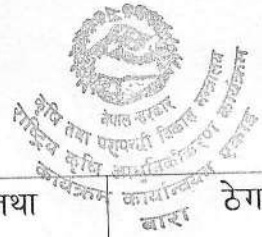 नेपाल सरकार
कृषि तथा पशुपन्छी विकास मन्त्रालय
राष्ट्रिय कृषि आधुनिकीकरण कार्यक्रम
कार्यक्रम कार्यान्वयन इकाइ
बारा
तथा
ठेग